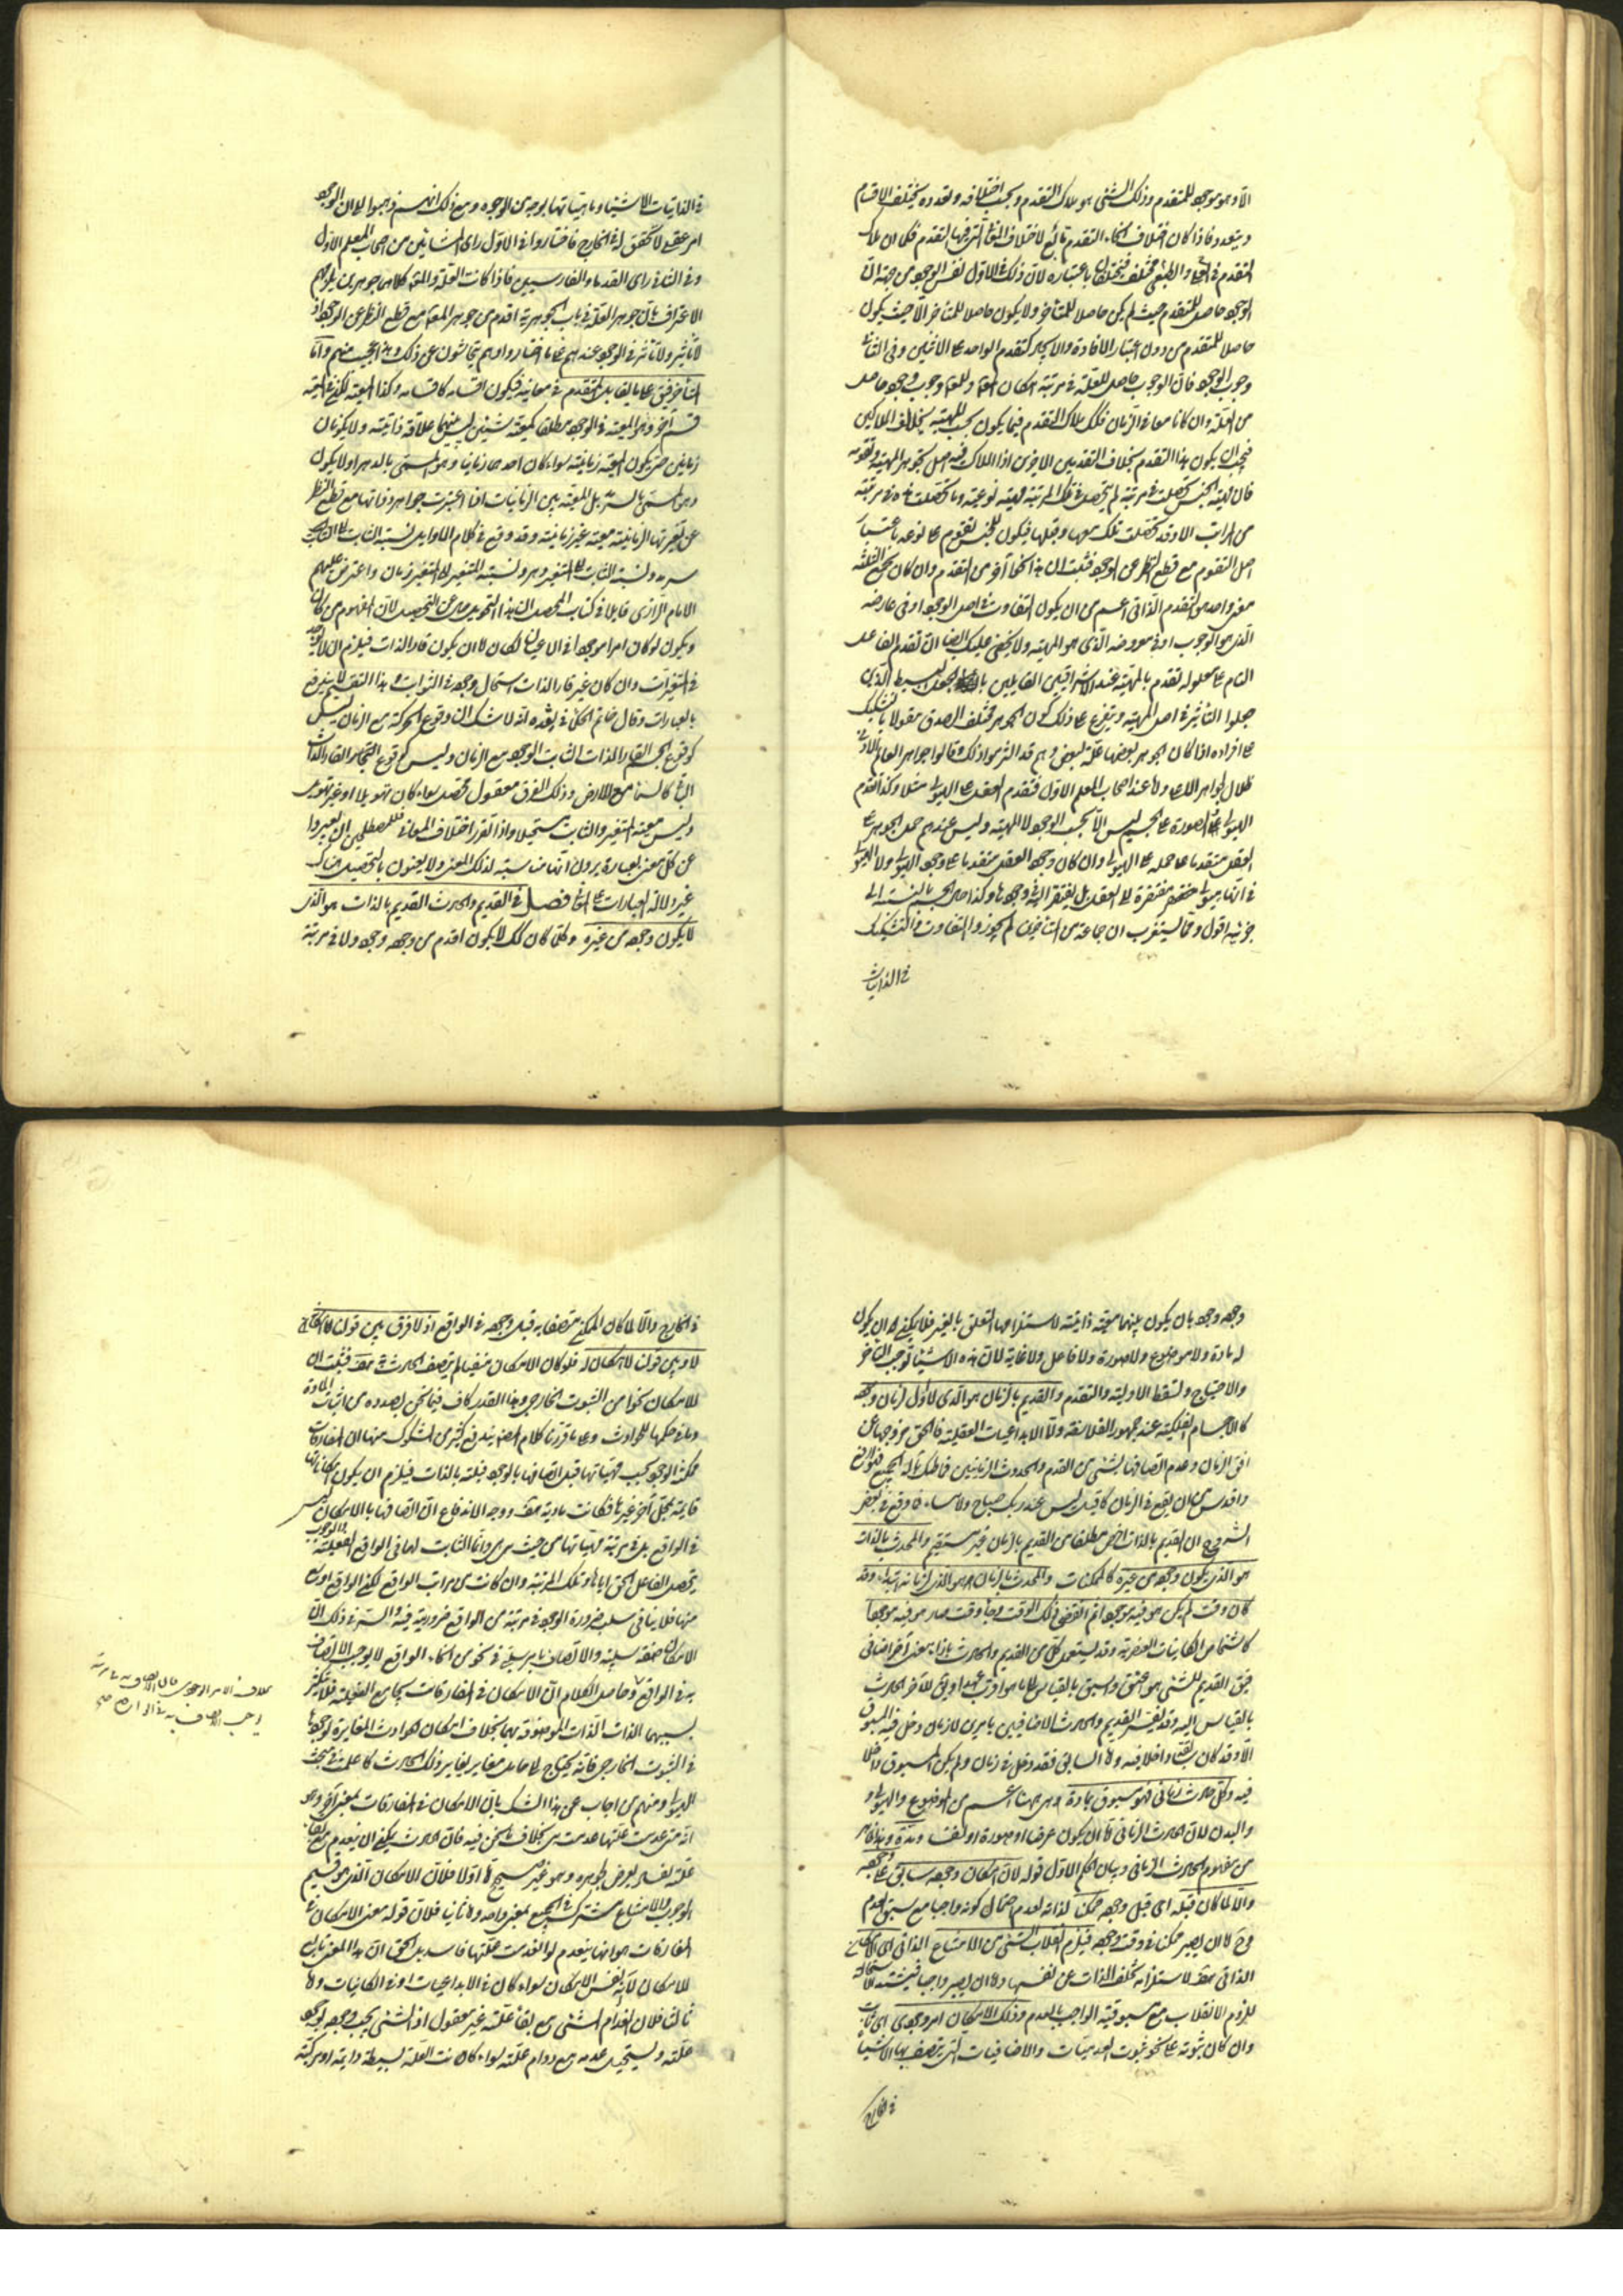 الا وهو موجود للمتقدم وذلك الشئ هو ملاك التقدم وبحسب اختلافه وتعدده يختلف الاقسام
ويتعدد فاذا كان اختلاف انحاء التقدم تابع لاختلاف المعنى الذى فيها التقدم فكما ان ملاك
التقدم فى والطبعى مختلف باعتباره لان ذلك فى الاول نفس الوجود من جهة ان
الوجود حاصل للمتقدم حيث لم يكن حاصلا للمتأخر ولا يكون حاصلا للمتأخر الا حيث يكون
حاصلا للمتقدم من دون اعتبار الافادة والايجاد كتقدم الواحد على الاثنين وفى الثانى
وجوب الوجود فان الوجوب حاصل للعلة فى مرتبة امكان المعلول وللمعلول وجوب وجود حاصل
من العلة وان كانا معا فى الزمان فكذلك ملاك التقدم فيما يكون بحسب المهية يخالف الملاكين
فيجب ان يكون هذا التقدم بخلاف التقدمين الاخرين اذ الملاك فيه اصل تجوهر المهية وتقومه
فان مهية الجنس تحصلت فى مرتبة لم يتحصل فى تلك المرتبة مهية نوعية وما تحصلت هذه فى مرتبة
من المراتب الا وقد تحصلت تلك معها وقبلها فيكون للجنس تقدم على نوعه باعتبار
اصل التقوم مع قطع النظر عن الوجود فثبت ان هذا نحو آخر من التقدم وان كان يجمع الثلثة
معنى واحد هو التقدم الذاتى اعم من ان يكون التفاوت فى اصل الوجود او فى عارضه
الذى هو الوجوب او فى معروضه الذى هو المهية ولا يخفى عليك ايضا ان تقدم الفاعل
التام على معلوله تقدم بالمهية عند الاشراقيين القائلين بالجعل البسيط الذين
جعلوا التأثير فى اصل المهية ويتفرع على ذلك كون الجوهر مختلف الصدق مقولا بالتشكيك
على افراده اذا كان الجوهر بعضها علة لبعض وهم قد التزموا ذلك وقالوا جواهر العالم الادنى
ظلال لجواهر الاعلى ولا عند اصحاب المعلم الاول فتقدم العقل على الهيولى مثلا وكذا تقدم
الهيولى والصورة على الجسم ليس الا بحسب الوجود لا المهية وليس عندهم حمل الجوهر على
العقل متقدما على حمله على الهيولى وان كان وجود العقل متقدما على وجود الهيولى ولا الهيولى
فى انها جوهر مفتقرة الى العقل بل يفتقر اليه فى وجودها وكذا حال الجسم بالنسبة الى
جزئيه اقول ومما يستغرب ان جماعة من المتأخرين لم يجوزوا التفاوت والتشكيك
فى الذاتيات
فى الذاتيات الاشياء وماهياتها بوجه من الوجوه ومع ذلك انهم ذهبوا الى ان الوجود
امر عقلى لا تحقق له فى الخارج فاختاروا فى الاول راى المشائين من اصحاب المعلم الاول
وفى الثانى راى القدماء والفارسيين فاذا كانت العلة والمعلول كلاهما جوهرين يلزمهم
الاعتراف بان جوهر العلة فى باب الجوهرية اقدم من جوهر المعلول مع قطع النظر عن الوجود اذ
لا تأثير ولا تأثر فى الوجود عندهم على ما اختاروا وهم يتحاشون عن ذلك وهذا عجيب منهم واما
التأخر فيق على ما يقابل المتقدم فى معانيه فيكون اقسامه كاقسامه وكذا المعية لكن فى المعية
قسم آخر وهو المعية فى الوجود مطلقا كمعية شيئين ليس بينهما علاقة ذاتية ولا يكونان
زمانيين حتى يكون المعية زمانية سواء كان احدهما زمانيا وهو المسمى بالدهر او لا يكون
وهو المسمى بالسرمد بل المعية بين الزمانيات اذا اعتبرت جواهر ذواتها مع قطع النظر
عن تغيراتها الزمانية معية غير زمانية وقد وقع فى كلام الاوايل نسبة الثابت الى الثابت
سرمد ونسبة الثابت الى المتغير دهر ونسبة المتغير الى المتغير زمان واعترض عليهم
الامام الرازى قايلا فى كتاب المحصل ان هذا التهويل خال عن التحصيل لان المفهوم من كان
ويكون لو كان امرا موجودا فى الاعيان لكان اما ان يكون قار الذات فيلزم ان لا يوجد
فى المتغيرات وان كان غير قار الذات استحال وجوده فى الثوابت وهذا التقسيم لا يندفع
بالعبارات وقال خاتم الحكماء فى نقده انه لا شك ان وقوع الحركة مع الزمان ليس
كوقوع الجسم القار الذات الثابت الوجود مع الزمان وليس كوقوع القار الذات
كالسماء مع الارض وذلك الفرق معقول محصل سواء كان تهويلا او غير تهويل
وليس معية المتغير والثابت مستحيلا واذا تقرر اختلاف المعانى فللمصطلحين ان يعبروا
عن كل معنى بعبارة يرون انها مناسبة لذلك المعنى ولا يعنون بالتحصيل هناك
غير دلالة العبارات على المعانى فصل فى القديم والحادث القديم بالذات هو الذى
لا يكون وجوده من غيره وكلما كان كذلك لا يكون اقدم من وجوده وجود ولا فى مرتبة
وجوده وجود بان يكون بينهما معية ذاتية لاستلزامها التعلق بالغير فلا يمكن له ان يكون
له مادة ولا موضوع ولا صورة ولا فاعل ولا غاية لان هذه الاشياء توجب التأخر
والاحتياج وتسقط الاولية والتقدم والقديم بالزمان هو الذى لا اول لزمان وجوده
كالاجسام الفلكية عند جمهور الفلاسفة ولا الابداعيات العقلية فالحق خروجها عن
افق الزمان وعدم اتصافها بشئ من القدم والحدوث الزمانيين فاظنك باله الجميع فهو ارفع
واقدس من ان يقع فى الزمان كما قيل ليس عند ربك صباح ولا مساء فما وقع فى بعض
الشروح ان القديم بالذات اخص مطلقا من القديم بالزمان غير مستقيم والمحدث بالذات
هو الذى يكون وجوده من غيره كالممكنات والمحدث بالزمان هو الذى لزمانه ابتداء وقد
كان وقت لم يكن هو فيه موجودا ثم انقضى ذلك الوقت وجاء وقت صار هو فيه موجودا
كاشخاص الكاينات العنصرية وقد يستعمل كل من القديم والحادث بازاء معنى آخر اضافى
فيق القديم للشئ هو عتيق واسبق بالقياس الى ما هو اقرب عهدا ويق للآخر الحادث
بالقياس اليه وقد يفسر القديم والحادث الاضافيين بامرين لا زمان دخل فيه المسبوق
الا وقد كان السابق داخلا فيه ولا السابق فقد دخل فى زمان ولم يكن المسبوق داخلا
فيه وكل حادث زمانى فهو مسبوق بمادة وهى ههنا اعم من الموضوع والهيولى و
والبدن لان الحادث الزمانى اما ان يكون عرضا او صورة او نفسا
من مفهوم الحادث الزمانى وبيان الحكم الاول قوله لان امكان وجوده سابق على وجوده
والا لما كان قبله اى قبل وجوده ممكنا لذاته لعدم احتمال كونه واجبا مع سبق العدم
وح اما ان يصير ممكنا فى وقت وجوده فيلزم انقلاب الشئ من الامتناع الذاتى الى الامكان
الذاتى هف لاستلزامه تخلف الذات عن نفسها واما ان يصير واجبا فيشتد الاستحالة
للزوم الانقلاب مع مسبوقية الواجب بالعدم وذلك الامكان امر وجودى اى ثابت
وان كان ثبوته على نحو ثبوت العدميات والاضافيات التى يتصف بها الاشياء
فى الخارج
فى الخارج والا لما كان الممكن متصفا به قبل وجوده فى الواقع اذ لا فرق بين قولنا امكانه
لا وبين قولنا لا امكان له فلو كان الامكان منفيا لم يتصف الحادث به هف فثبت ان
للامكان نحوا من الثبوت الخارجى وهذا القدر كاف فيما نحن بصدده من اثبات المادة
وما فى حكمها للحوادث وعلى ما قررنا كلام المص يندفع كثير من الشكوك منها ان المفارقات
ممكنة الوجود بحسب مهياتها قبل اتصافها بالوجود قبلية بالذات فيلزم ان يكون امكاناتها
قايمة بمحل آخر غيرها فكانت مادية هف ووجه الاندفاع ان اتصافها بالامكان ليس
فى الواقع بل فى مرتبة مهياتها من حيث هى هى وانما الثابت لها فى الواقع الفعلية والوجوب
بتحصيل الفاعل الحق اياها وتلك المرتبة وان كانت من مراتب الواقع لكن الواقع اوسع
منها فلا ينافى سلب ضرورة الوجود فى مرتبة من الواقع ضرورية فيه والسر فى ذلك ان
الامكان صفة سلبية والاتصاف بامر سلبى فى نحو من انحاء الواقع لا يوجب الاتصاف
به فى الواقع وحاصل الكلام ان الامكان فى المفارقات يجامع الفعلية فلا يتكثر
بسببهما الذات الذات الموصوفة بهما بخلاف امكان الحوادث المغايرة لوجودها
فى الثبوت الخارجى فانه يحتاج الى حامل مغاير يغاير ذلك الحادث كما علمت فى مبحث
الهيولى ومنهم من اجاب عن هذا الشك بان الامكان فى المفارقات بمعنى آخر وهو
انه متى عدمت علتها عدمت هى بخلاف ما نحن فيه فان الحادث يمكن ان ينعدم مع بقاء
علته لفساد يعرض لجوهره وهو غير صحيح اما اولا فلان الامكان الذى هو قسيم
الوجوب والامتناع مشترك فى الجميع بمعنى واحد واما ثانيا فلان قوله معنى الامكان فى
المفارقات هو انها ينعدم لو انعدمت علتها فاسد بل الحق ان هذا المعنى تابع
للامكان لا نفس الامكان سواء كان فى الابداعيات او فى الكاينات واما
ثالثا فلان انعدام الشئ مع بقاء علته غير معقول اذ الشئ يجب وجوده بوجود
علته ويستحيل عدمه مع دوام علته سواء كانت العلة بسيطة دايمة او مركبة
بخلاف الامر الوجودى فان الاتصاف به فى مرتبة
يوجب الاتصاف به فى الواقع صح